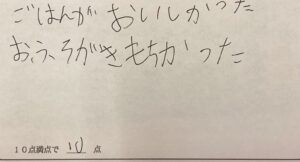 ごはんが おいしかった
おふろがきもちかった
10点満点で 10 点